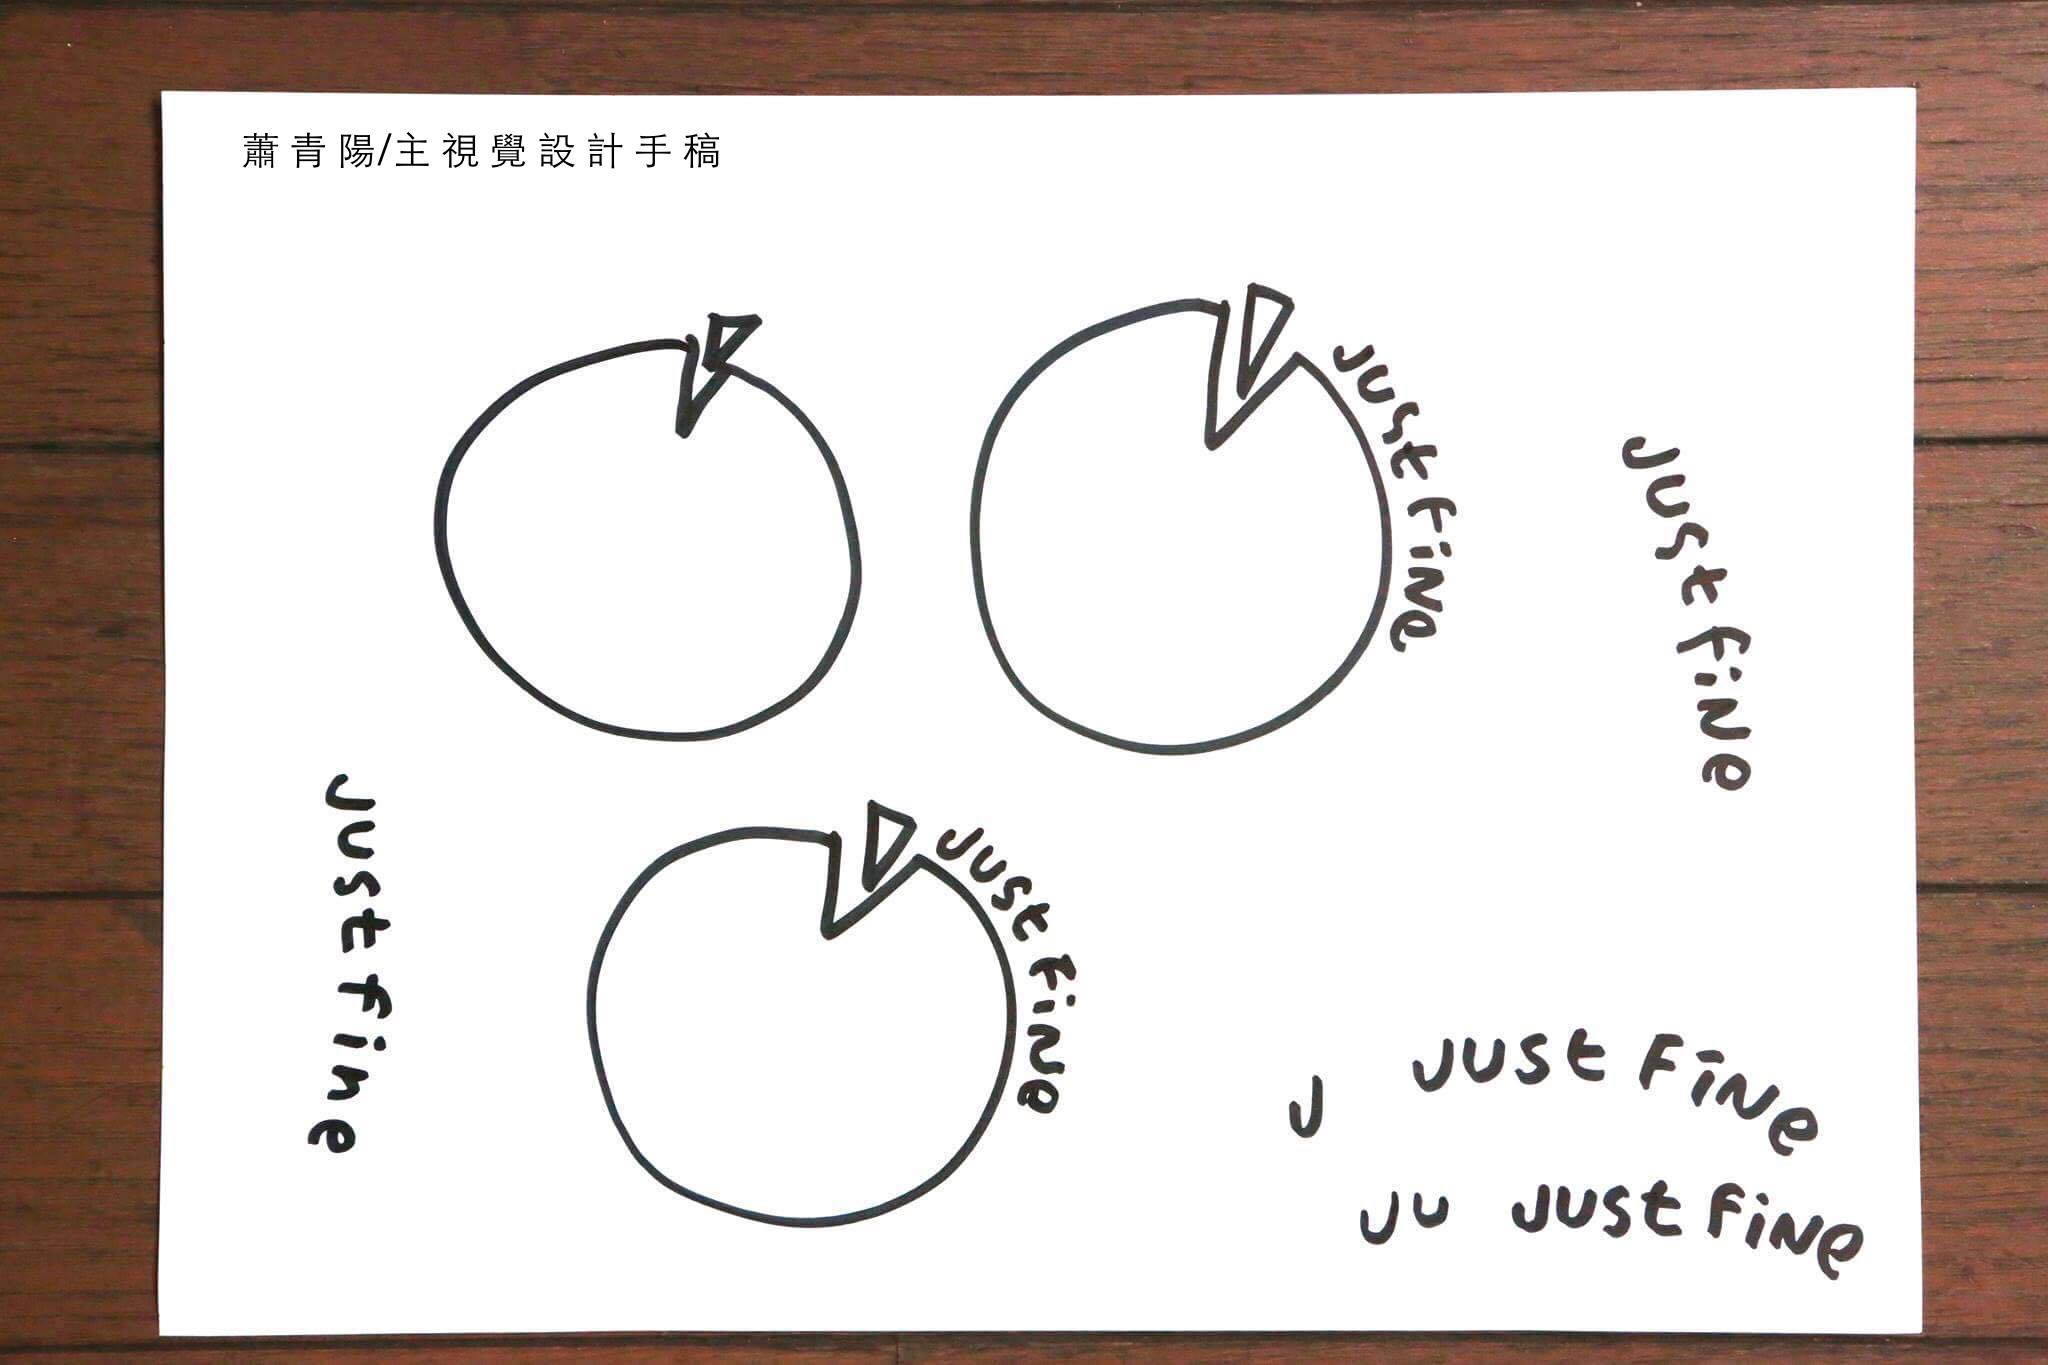 蕭青陽/主視覺設計手稿
JUST FINE
JUST FINE
JUST fine
JUST FINE
J JUST FINE
JU JUST FINE